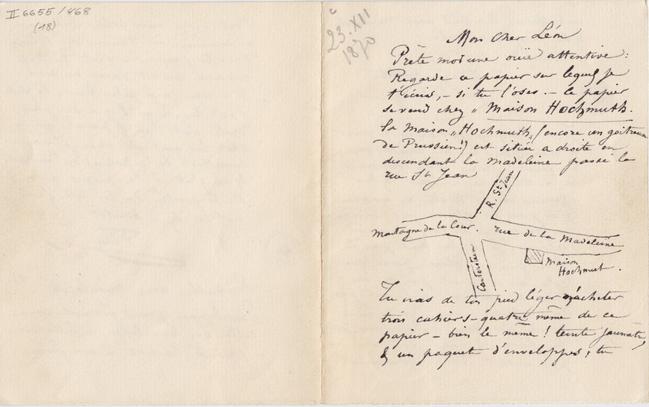 II 6655/468
(18)
23.XII
1870
Mon cher Léon
Prête moi une ouïe attentive :
Regarde ce papier sur lequel je
t'écris, – si tu l'oses. – Ce papier
se vend chez "Maison Hochmuth.
La Maison "Hochmuth, (encore un
de Prussien!) est située a droite en
descendant la Madeleine passé la
rue St Jean
R. St Jean
Montagne de la Cour.
rue de la Madeleine
Cantersteen
Maison
Hochmut.
Tu iras de ton pied léger m'acheter
trois cahiers – quatre même de ce
papier – bien le même! teinte jaunâtre,
& un paquet d'enveloppes; tu